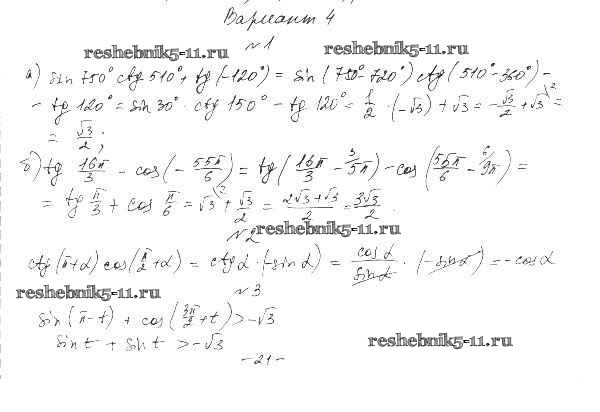 Вариант 4
reshebnik5-11.ru №1 reshebnik5-11.ru
а) sin 750° ctg 510° + tg(-120°) = sin(750°-720°) ctg(510°-360°) -
- tg 120° = sin 30° · ctg 150° - tg 120° = 1/2 · (-√3) + √3 = -√3/2 + √3 \2 =
= √3/2 ;
б) tg 16π/3 - cos(- 55π/6) = tg(16π/3 - 5π \3) - cos(55π/6 - 9π \6) =
= tg π/3 + cos π/6 = √3 \2 + √3/2 = (2√3 + √3)/2 = 3√3/2 .
№2 reshebnik5-11.ru
ctg(π+α) cos(π/2+α) = ctg α · (-sin α) = cos α/sin α · (-sin α) = -cos α
reshebnik5-11.ru №3
sin(π-t) + cos(3π/2+t) > -√3
sin t + sin t > -√3 reshebnik5-11.ru
-21-